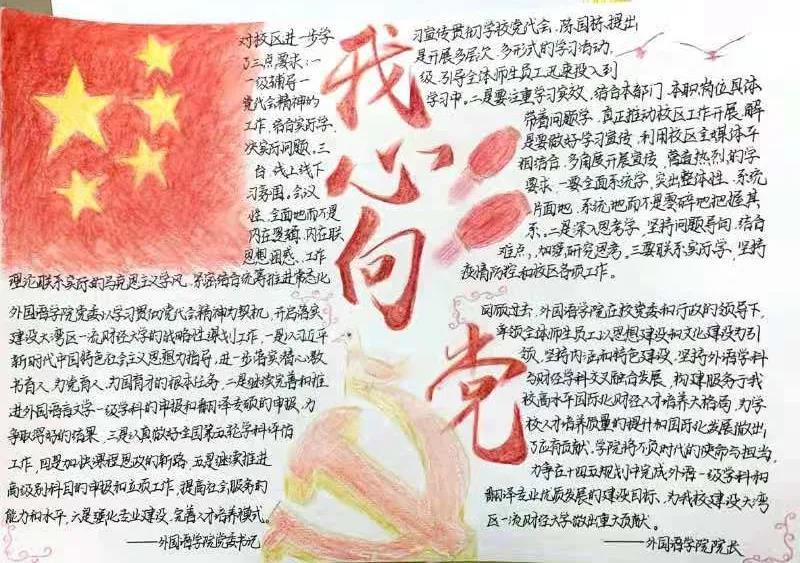 我心向党
对校区进一步学习宣传贯彻学校党代会、陈国栋提出
了三点要求:一是开展多层次、多形式的学习活动,
一级辅导一级,引导全体师生员工迅速投入到
党代会精神的学习中。二是要注重学习实效,结合本部门、本职岗位具体
工作,结合实际学、带着问题学、真正推动校区工作开展,解
决实际问题。三是要做好学习宣传,利用校区主媒体平
台,线上线下相结合,多角度开展宣传,营造热烈的学
习氛围。会议要求,一要全面系统学,突出整体性、系统
性,全面地而不是片面地,系统地而不是零碎地把握其
内在逻辑、内在联系、二是深入思考学,坚持问题导向,结合
思想困惑、工作难点,加强研究思考。三要联系实际学,坚持
理论联系实际的马克思主义学风,紧密结合统筹推进常态化疫情防控和校区各项工作。
外国语学院党委以学习贯彻党代会精神为契机,开启落实
建设大湾区一流财经大学的战略性谋划工作,一是以习近平
新时代中国特色社会主义思想为指导,进一步落实潜心教
书育人,为党育人、为国育才的根本任务,二是继续完善和推
进外国语言文学一级学科的申报和翻译专硕的申报,力
争取得好的结果,三是认真做好全国第五轮学科评估
工作,四是加快课程思政的新路,五是继续推进
高级别科目的申报和立项工作,提高社会服务的
能力和水平,六是强化专业建设,完善人才培养模式。
——外国语学院党委书记
回顾过去,外国语学院在校党委和行政的领导下,
率领全体师生员工以思想建设和文化建设为引
领,坚持内涵和特色建设,坚持外语学科
与财经学科交叉融合发展,构建服务于我
校高水平国际化财经人才培养大格局,为学
校人才培养质量的提升和国际化发展做出
了应有贡献。学院将不负时代的使命与担当,
力争在十四五规划中完成外语一级学科和
翻译专业优质发展的建设目标,为我校建设大湾
区一流财经大学做出重大贡献。
——外国语学院院长